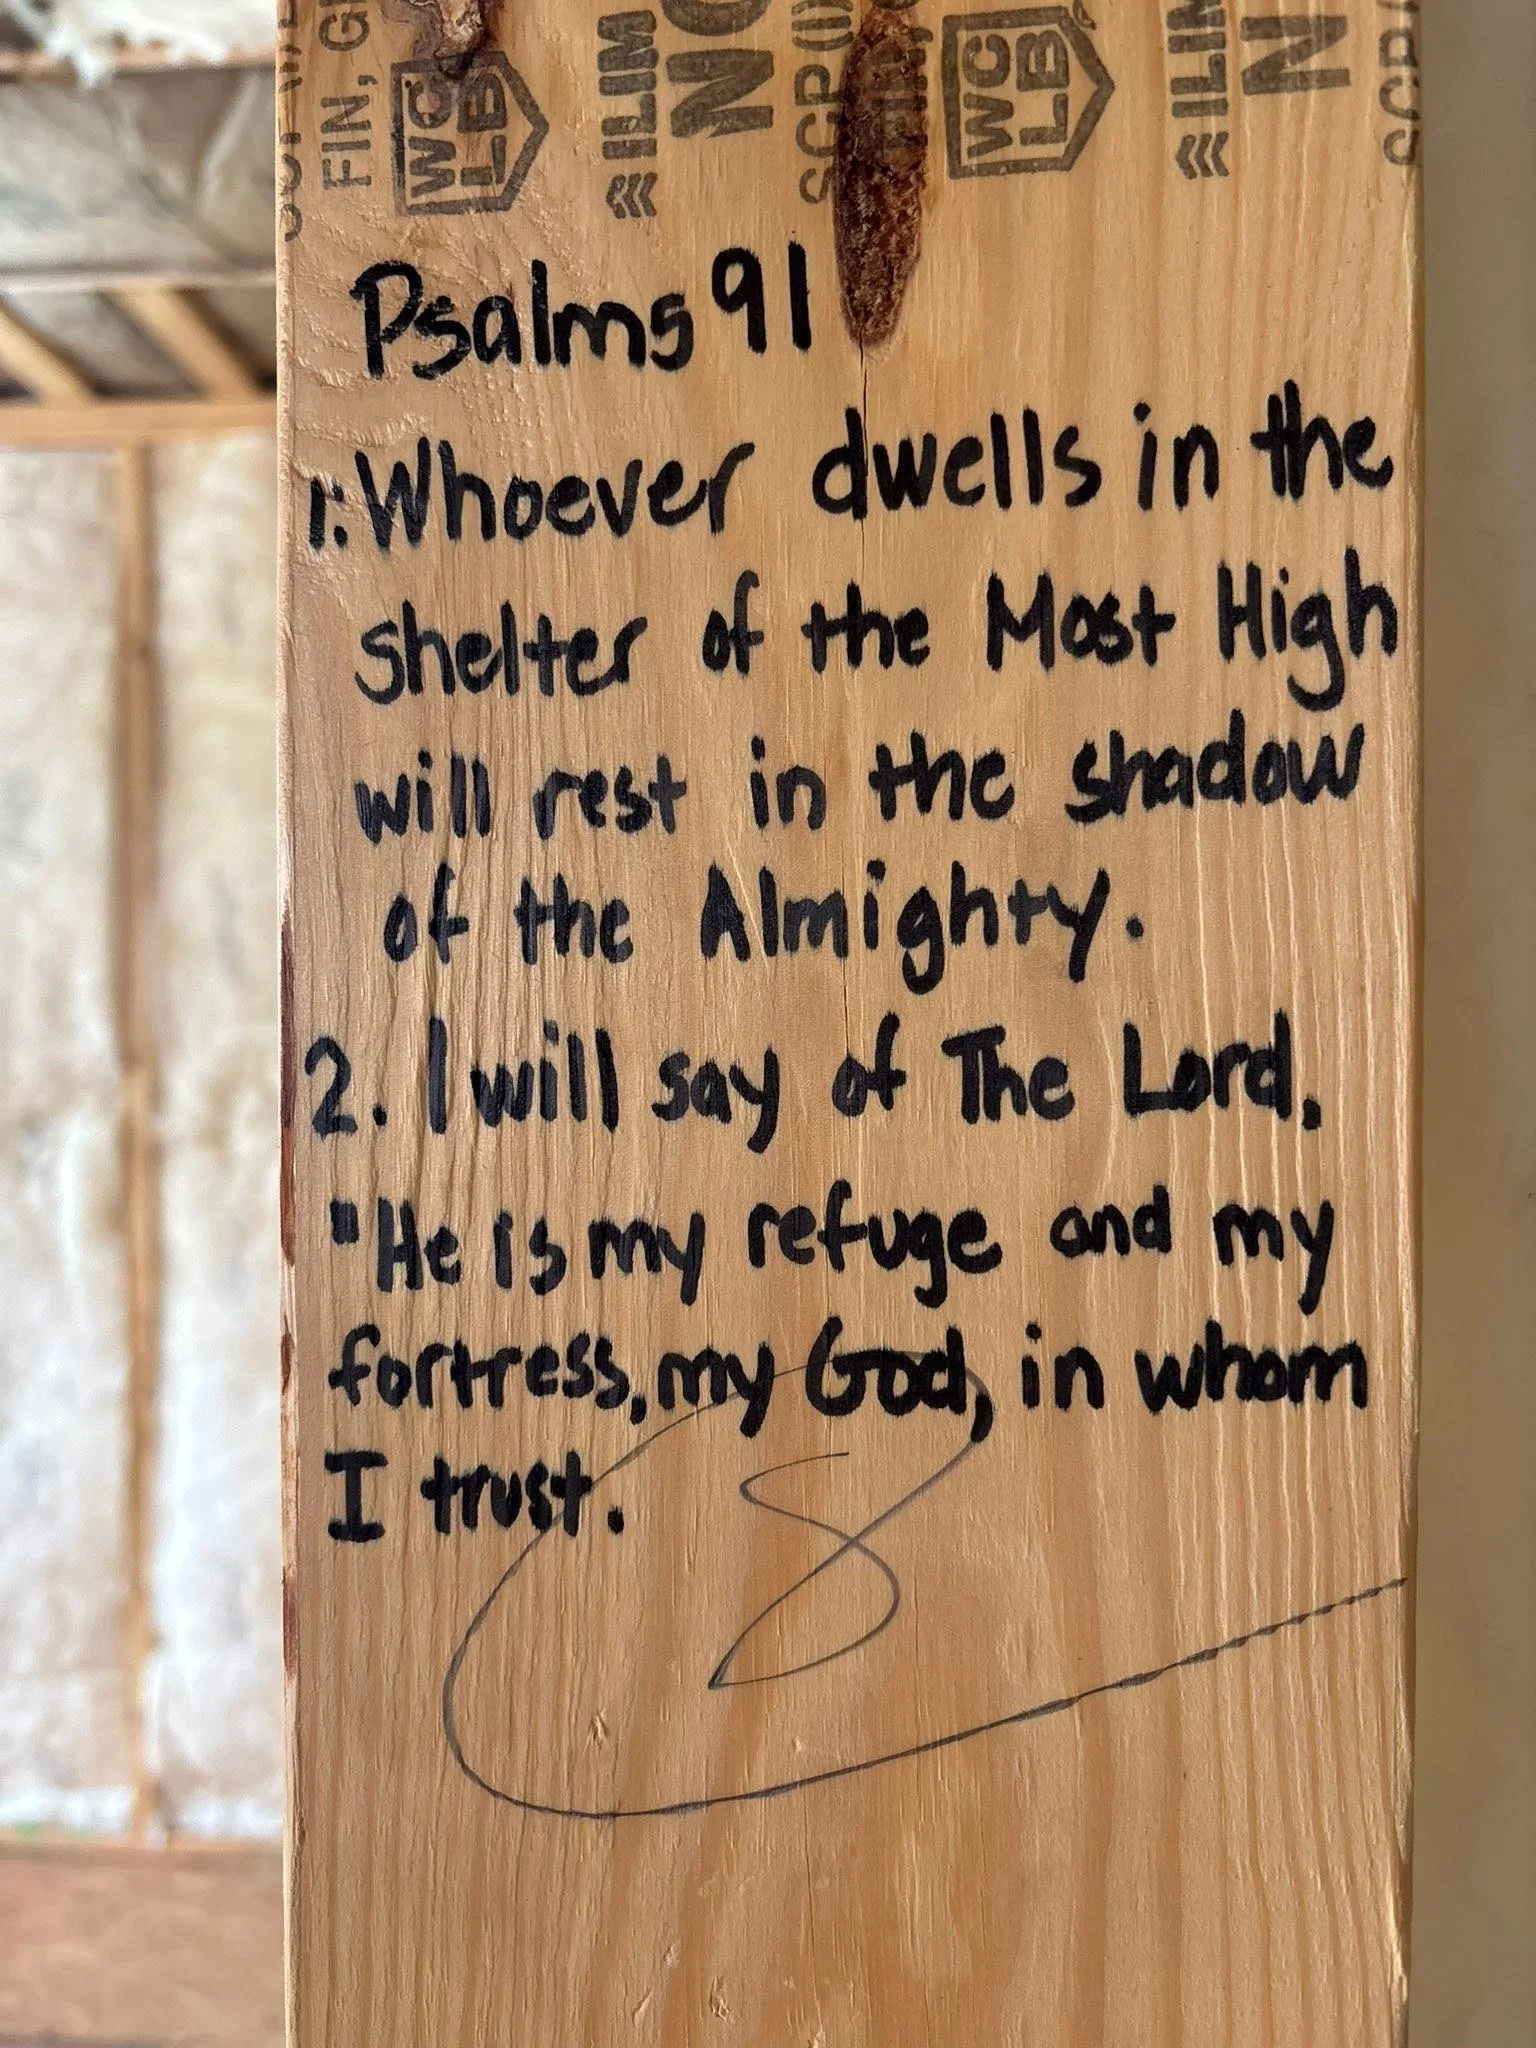 FIN, G
WC
LB
ILIM
NO
SCR(I)
WC
LB
ILIM
N
Psalms 91
1: Whoever dwells in the
shelter of the Most High
will rest in the shadow
of the Almighty.
2. I will say of The Lord,
"He is my refuge and my
fortress, my God, in whom
I trust.
8